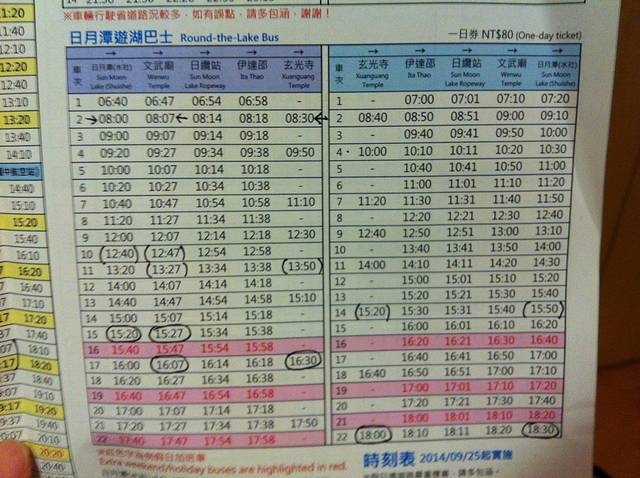 ※車輛行駛省道路況較多，如有誤點，請多包涵，謝謝！
日月潭遊湖巴士 Round-the-Lake Bus 一日券 NT$80 (One-day ticket)
車次 日月潭(水社) 文武廟 日纜站 伊達邵 玄光寺
Sun Moon Lake (Shuishe) Wenwu Temple Sun Moon Lake Ropeway Ita Thao Xuanguang Temple
1 06:40 06:47 06:54 06:58 -
2 08:00 08:07 08:14 08:18 08:30
3 09:00 09:07 09:14 09:18 -
4 09:20 09:27 09:34 09:38 09:50
5 10:00 10:07 10:14 10:18 -
6 10:20 10:27 10:34 10:38 -
7 10:40 10:47 10:54 10:58 11:10
8 11:20 11:27 11:34 11:38 -
9 12:00 12:07 12:14 12:18 12:30
10 12:40 12:47 12:54 12:58 -
11 13:20 13:27 13:34 13:38 13:50
12 14:00 14:07 14:14 14:18 -
13 14:40 14:47 14:54 14:58 15:10
14 15:00 15:07 15:14 15:18 -
15 15:20 15:27 15:34 15:38 -
16 15:40 15:47 15:54 15:58 -
17 16:00 16:07 16:14 16:18 16:30
18 16:20 16:27 16:34 16:38 -
19 16:40 16:47 16:54 16:58 -
20 17:00 17:07 17:14 17:18 -
21 17:20 17:27 17:34 17:38 17:50
22 17:40 17:47 17:54 17:58 -
Extra weekend/holiday buses are highlighted in red.
車次 玄光寺 伊達邵 日纜站 文武廟 日月潭(水社)
Xuanguang Temple Ita Thao Sun Moon Lake Ropeway Wenwu Temple Sun Moon Lake (Shuishe)
1 - 07:00 07:01 07:10 07:20
2 08:40 08:50 08:51 09:00 09:10
3 - 09:40 09:41 09:50 10:00
4 10:00 10:10 10:11 10:20 10:30
5 - 10:40 10:41 10:50 11:00
6 - 11:00 11:01 11:10 11:20
7 11:20 11:30 11:31 11:40 11:50
8 - 12:20 12:21 12:30 12:40
9 12:40 12:50 12:51 13:00 13:10
10 - 13:40 13:41 13:50 14:00
11 14:00 14:10 14:11 14:20 14:30
12 - 15:00 15:01 15:10 15:20
13 - 15:20 15:21 15:30 15:40
14 15:20 15:30 15:31 15:40 15:50
15 - 16:00 16:01 16:10 16:20
16 - 16:20 16:21 16:30 16:40
17 - 16:40 16:41 16:50 17:00
18 16:40 16:50 16:51 17:00 17:10
19 - 17:00 17:01 17:10 17:20
20 - 17:20 17:21 17:30 17:40
21 - 18:00 18:01 18:10 18:20
22 18:00 18:10 18:11 18:20 18:30
時刻表 2014/09/25起實施
11:40
12:10
12:20
12:40
13:10
13:20
13:40
14:10
14:40
15:10
15:20
15:40
16:10
16:20
16:40
17:10
17:20
17:40
18:10
18:20
18:40
19:10
19:20
19:40
20:10
20:20
20:40